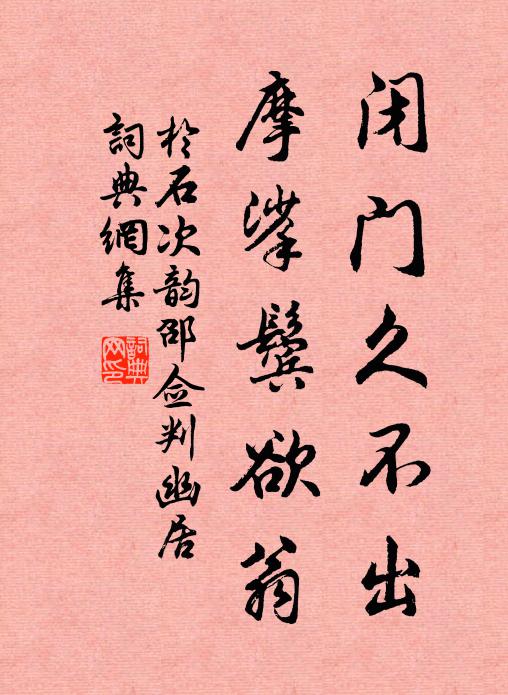 闭门久不出
摩挲鬓欲翁
於石次韵邵佥判幽居
詞典網集
詞典网印